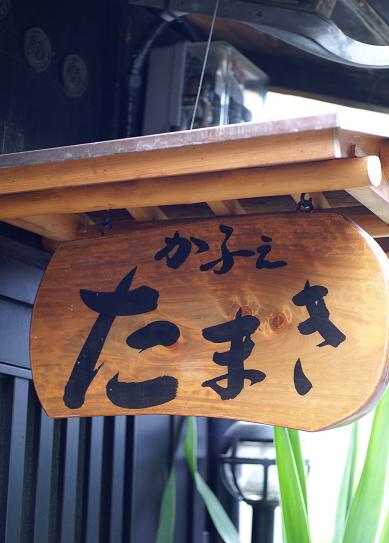 かふえ
たまき